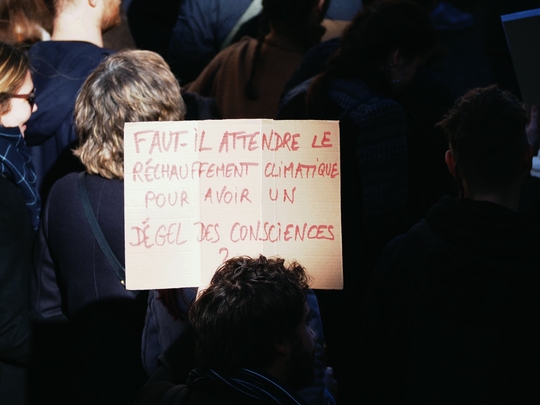 FAUT-IL ATTENDRE LE
RÉCHAUFFEMENT CLIMATIQUE
POUR AVOIR UN
DÉGEL DES CONSCIENCES
?